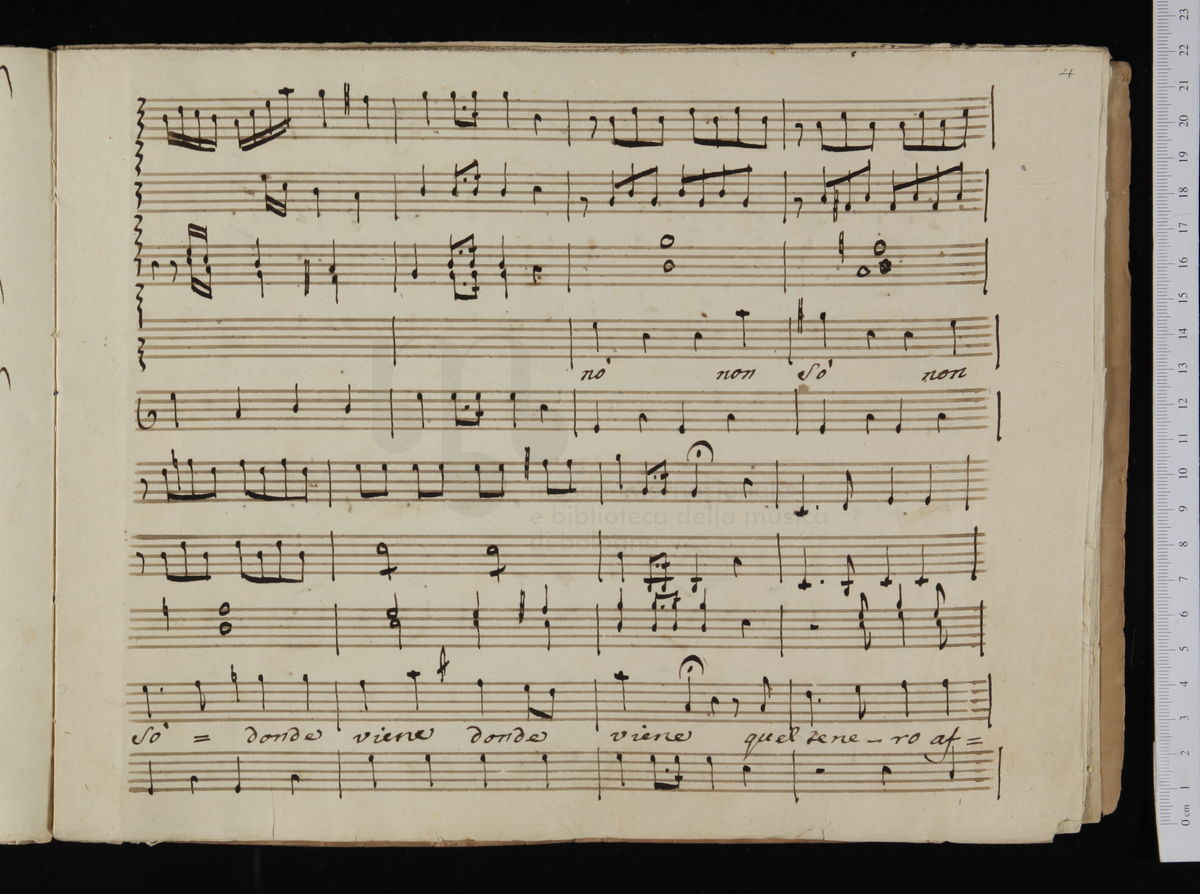 4
nò non sò non
sò = donde viene donde viene quel tene - ro af =
e biblioteca della musica
23
22
21
20
19
18
17
16
15
14
13
12
11
10
9
8
7
6
5
4
3
2
1
0 cm